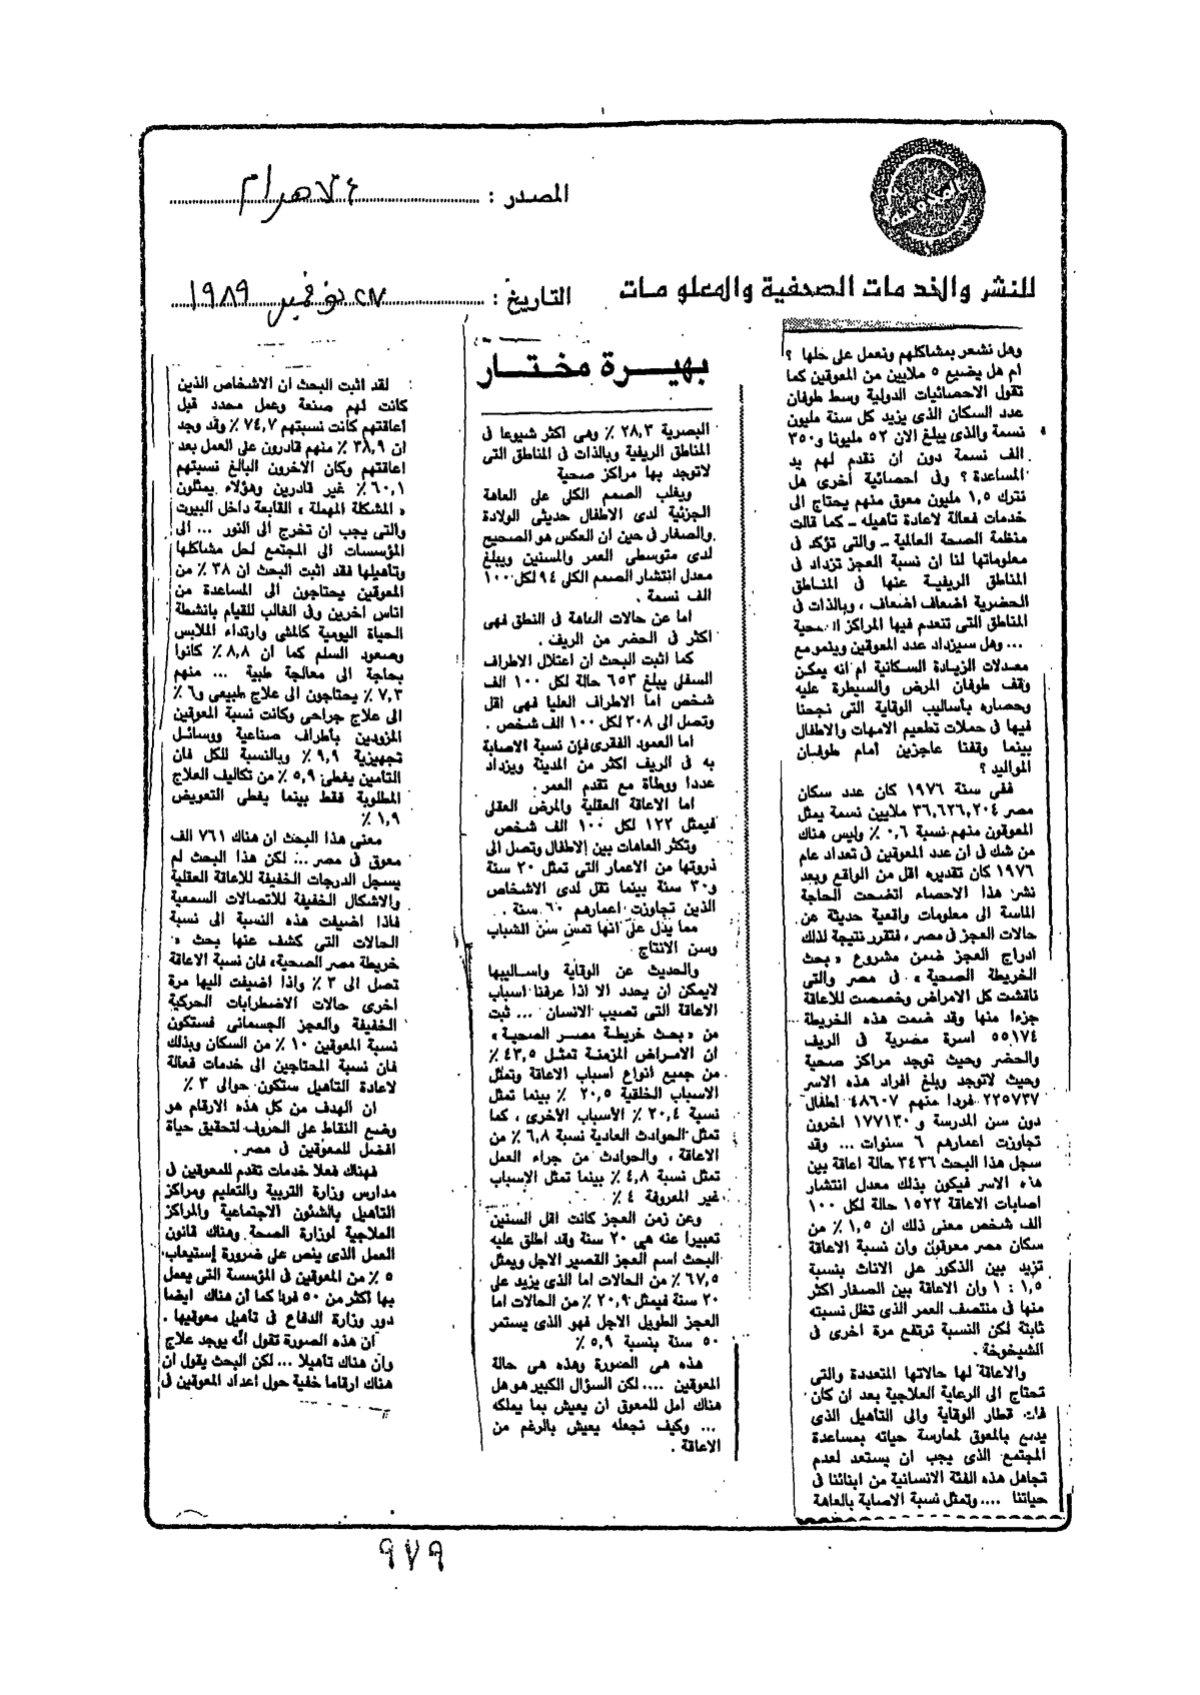 المصدر : الاهرام
للنشر والخدمات الصحفية والمعلومات
التاريخ : ٢٧ نوفمبر ١٩٨٩
وهل نشعر بمشاكلهم ونعمل على حلها ؟
ام هل يضيع ٥ ملايين من المعوقين كما
تقول الاحصائيات الدولية وسط طوفان
عدد السكان الذى يزيد كل سنة مليون
نسمة والذى يبلغ الان ٥٢ مليونا و٣٥٠
الف نسمة دون ان نقدم لهم يد
المساعدة ؟ وفى احصائية أخرى هل
نترك ١,٥ مليون معوق منهم يحتاج الى
خدمات فعالة لاعادة تاهيله ـ كما قالت
منظمة الصحة العالمية ـ والتى تؤكد فى
معلوماتها لنا ان نسبة العجز تزداد فى
المناطق الريفية عنها فى المناطق
الحضرية اضعاف اضعاف ، وبالذات فى
المناطق التى تنعدم فيها المراكز الصحية
... وهل سيزداد عدد المعوقين وينمو مع
معدلات الزيادة السكانية ام انه يمكن
وقف طوفان المرض والسيطرة عليه
وحصاره بأساليب الوقاية التى نجحنا
فيها فى حملات تطعيم الامهات والاطفال
بينما وقفنا عاجزين امام طوفان
المواليد ؟
ففى سنة ١٩٧٦ كان عدد سكان
مصر ٣٦,٦٢٦,٢٠٤ ملايين نسمة يمثل
المعوقون منهم نسبة ٠,٦ ٪ وليس هناك
من شك فى ان عدد المعوقين فى تعداد عام
١٩٧٦ كان تقديره اقل من الواقع وبعد
نشر هذا الاحصاء اتضحت الحاجة
الماسة الى معلومات واقعية حديثة عن
حالات العجز فى مصر ، فتقرر نتيجة لذلك
ادراج العجز ضمن مشروع « بحث
الخريطة الصحية » فى مصر والتى
ناقشت كل الامراض وخصصت للاعاقة
جزءا منها وقد ضمت هذه الخريطة
٥٥١٧٤ اسرة مصرية فى الريف
والحضر وحيث توجد مراكز صحية
وحيث لاتوجد وبلغ أفراد هذه الاسر
٢٢٥٧٣٧ فردا منهم ٤٨٦٠٧ اطفال
دون سن المدرسة و ١٧٧١٣٠ اخرون
تجاوزت اعمارهم ٦ سنوات ... وقد
سجل هذا البحث ٣٤٣٦ حالة اعاقة بين
هذه الاسر فيكون بذلك معدل انتشار
اصابات الاعاقة ١٥٢٢ حالة لكل ١٠٠
الف شخص معنى ذلك ان ١,٥ ٪ من
سكان مصر معوقون وأن نسبة الاعاقة
تزيد بين الذكور على الاناث بنسبة
١,٥ : ١ وان الاعاقة بين الصغار اكثر
منها فى منتصف العمر الذى تظل نسبته
ثابتة لكن النسبة ترتفع مرة اخرى فى
الشيخوخة .
والاعاقة لها حالاتها المتعددة والتى
تحتاج الى الرعاية العلاجية بعد ان كان
فات قطار الوقاية والى التأهيل الذى
يدفع بالمعوق لممارسة حياته بمساعدة
المجتمع الذى يجب ان يستعد لعدم
تجاهل هذه الفئة الانسانية من ابنائنا فى
حياتنا .... وتمثل نسبة الاصابة بالعاهة
بهيرة مختار
البصرية ٢٨,٣ ٪ وهى اكثر شيوعا فى
المناطق الريفية وبالذات فى المناطق التى
لاتوجد بها مراكز صحية
ويغلب الصمم الكلى على العاهة
الجزئية لدى الاطفال حديثى الولادة
والصغار فى حين ان العكس هو الصحيح
لدى متوسطى العمر والمسنين ويبلغ
معدل انتشار الصمم الكلى ٩٤ لكل ١٠٠
الف نسمة .
اما عن حالات العاهة فى النطق فهى
اكثر فى الحضر من الريف .
كما اثبت البحث ان اعتلال الاطراف
السفلى يبلغ ٦٥٣ حالة لكل ١٠٠ الف
شخص اما الاطراف العليا فهى اقل
وتصل الى ٢٠٨ لكل ١٠٠ الف شخص .
اما العمود الفقرى فإن نسبة الاصابة
به فى الريف اكثر من المدينة ويزداد
عددا ووطأة مع تقدم العمر .
اما الاعاقة العقلية والمرض العقلى
فيمثل ١٢٢ لكل ١٠٠ الف شخص
وتكثر العاهات بين الاطفال وتصل الى
ذروتها من الاعمار التى تمثل ٢٠ سنة
و٣٠ سنة بينما تقل لدى الاشخاص
الذين تجاوزت اعمارهم ٦٠ سنة .
مما يدل على انها تمس سن الشباب
وسن الانتاج .
والحديث عن الوقاية واساليبها
لايمكن ان يحدد الا اذا عرفنا اسباب
الاعاقة التى تصيب الانسان ... ثبت
من « بحث خريطة مصر الصحية »
ان الامراض المزمنة تمثل ٤٣,٥ ٪
من جميع انواع اسباب الاعاقة وتمثل
الاسباب الخلقية ٢٠,٥ ٪ بينما تمثل
نسبة ٢٠,٤ ٪ الأسباب الاخرى ، كما
تمثل الحوادث العادية نسبة ٦,٨ ٪ من
الاعاقة ، والحوادث من جراء العمل
تمثل نسبة ٤,٨ ٪ بينما تمثل الاسباب
غير المعروفة ٤ ٪
وعن زمن العجز كانت اقل السنين
تعبيرا عنه هى ٢٠ سنة وقد اطلق عليه
البحث اسم العجز القصير الاجل ويمثل
٦٧,٥ ٪ من الحالات اما الذى يزيد على
٢٠ سنة فيمثل ٢٠,٩ ٪ من الحالات اما
العجز الطويل الاجل فهو الذى يستمر
٥٠ سنة بنسبة ٥,٩ ٪
هذه هى الصورة وهذه هى حالة
المعوقين .... لكن السؤال الكبير هو هل
هناك امل للمعوق ان يعيش بما يملكه
... وكيف نجعله يعيش بالرغم من
الاعاقة .
لقد اثبت البحث ان الاشخاص الذين
كانت لهم صنعة وعمل محدد قبل
اعاقتهم كانت نسبتهم ٧٤,٧ ٪ وقد وجد
ان ٣٨,٩ ٪ منهم قادرون على العمل بعد
اعاقتهم وكان الاخرون البالغ نسبتهم
٦٠,١ ٪ غير قادرين وهؤلاء يمثلون
« المشكلة المهملة » القابعة داخل البيوت
والتى يجب ان تخرج الى النور ... الى
المؤسسات الى المجتمع لحل مشاكلها
وتاهيلها فقد اثبت البحث ان ٣٨ ٪ من
المعوقين يحتاجون الى المساعدة من
اناس اخرين وفى الغالب للقيام بانشطة
الحياة اليومية كالمشى وارتداء الملابس
وصعود السلم كما ان ٨,٨ ٪ كانوا
بحاجة الى معالجة طبية ... منهم
٧,٣ ٪ يحتاجون الى علاج طبيعى و٦ ٪
الى علاج جراحى وكانت نسبة المعوقين
المزودين بأطراف صناعية ووسائل
تجهيزية ٩,٩ ٪ وبالنسبة للكل فان
التأمين يغطى ٥,٩ ٪ من تكاليف العلاج
المطلوبة فقط بينما يغطى التعويض
١,٩ ٪
معنى هذا البحث ان هناك ٧٦١ الف
معوق فى مصر ... لكن هذا البحث لم
يسجل الدرجات الخفيفة للاعاقة العقلية
والاشكال الخفيفة للاتصالات السمعية
فاذا اضيفت هذه النسبة الى نسبة
الحالات التى كشف عنها بحث «
خريطة مصر الصحية» فان نسبة الاعاقة
تصل الى ٣ ٪ واذا اضيفت اليها مرة
اخرى حالات الاضطرابات الحركية
الخفيفة والعجز الجسمانى فستكون
نسبة المعوقين ١٠ ٪ من السكان وبذلك
فان نسبة المحتاجين الى خدمات فعالة
لاعادة التأهيل ستكون حوالى ٣ ٪
ان الهدف من كل هذه الارقام هو
وضع النقاط على الحروف لتحقيق حياة
افضل للمعوقين فى مصر .
فهناك فعلا خدمات تقدم للمعوقين فى
مدارس وزارة التربية والتعليم ومراكز
التاهيل بالشئون الاجتماعية والمراكز
العلاجية لوزارة الصحة وهناك قانون
العمل الذى ينص على ضرورة إستيعاب
٥ ٪ من المعوقين فى المؤسسة التى يعمل
بها اكثر من ٥٠ فردا كما ان هناك ايضا
دور وزارة الدفاع فى تأهيل معوقيها .
ان هذه الصورة تقول انه يوجد علاج
وان هناك تأهيلا ... لكن البحث يقول ان
هناك ارقاما خفية حول اعداد المعوقين فى
٩٧٩